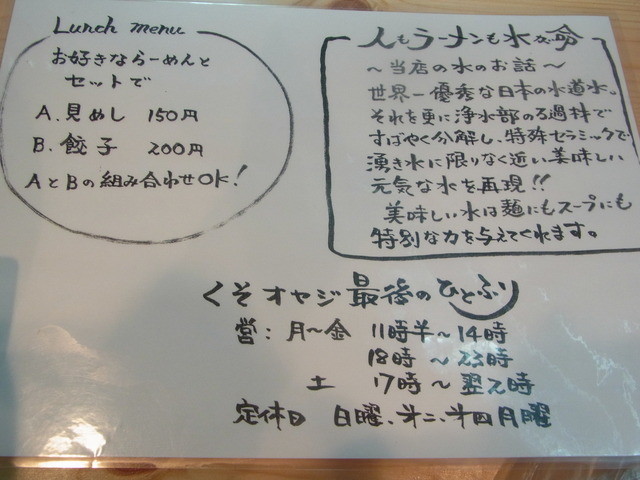 Lunch menu
お好きならーめんと
セットで
A. 見めし 150円
B. 餃子 200円
AとBの組み合わせOK!
人もラーメンも水が命
～当店の水のお話～
世界一優秀な日本の水道水。
それを更に浄水部のろ過材で
すばやく分解し、特殊セラミックで
湧き水に限りなく近い、美味しい
元気な水を再現!!
美味しい水は麺にもスープにも
特別な力を与えてくれます。
くそオヤジ最後のひとふり
営: 月～金 11時半～14時
18時～23時
土 17時～翌2時
定休日 日曜、第二、第四月曜